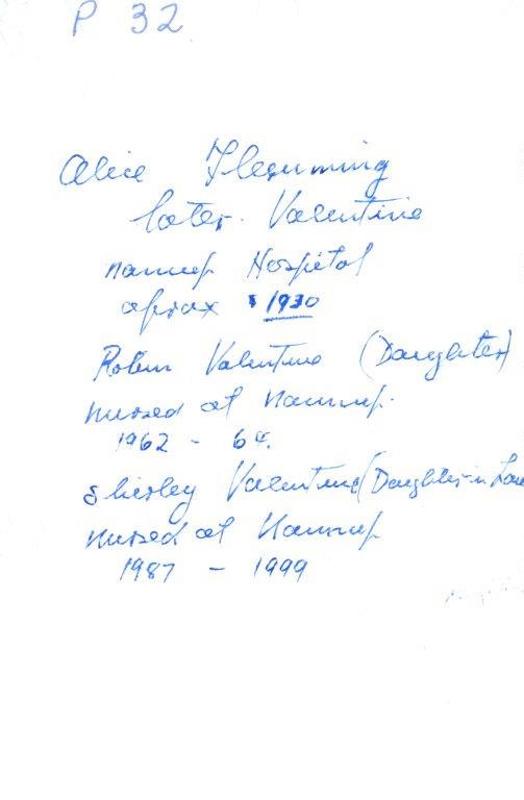 P 32
Alice Flemming
later. Valentine
Nannup Hospital
aprox 1930
Robin Valentine (Daughter)
nursed at Nannup.
1962 - 64.
Shirley Valentine (Daughter in Law
nursed at Nannup
1987 - 1999